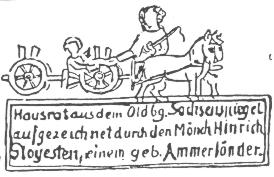 Hausrat aus dem Oldbg. Sachsenspiegel
aufgezeichnet durch den Mönch Hinrich
Gloyesten, einem geb. Ammerländer.